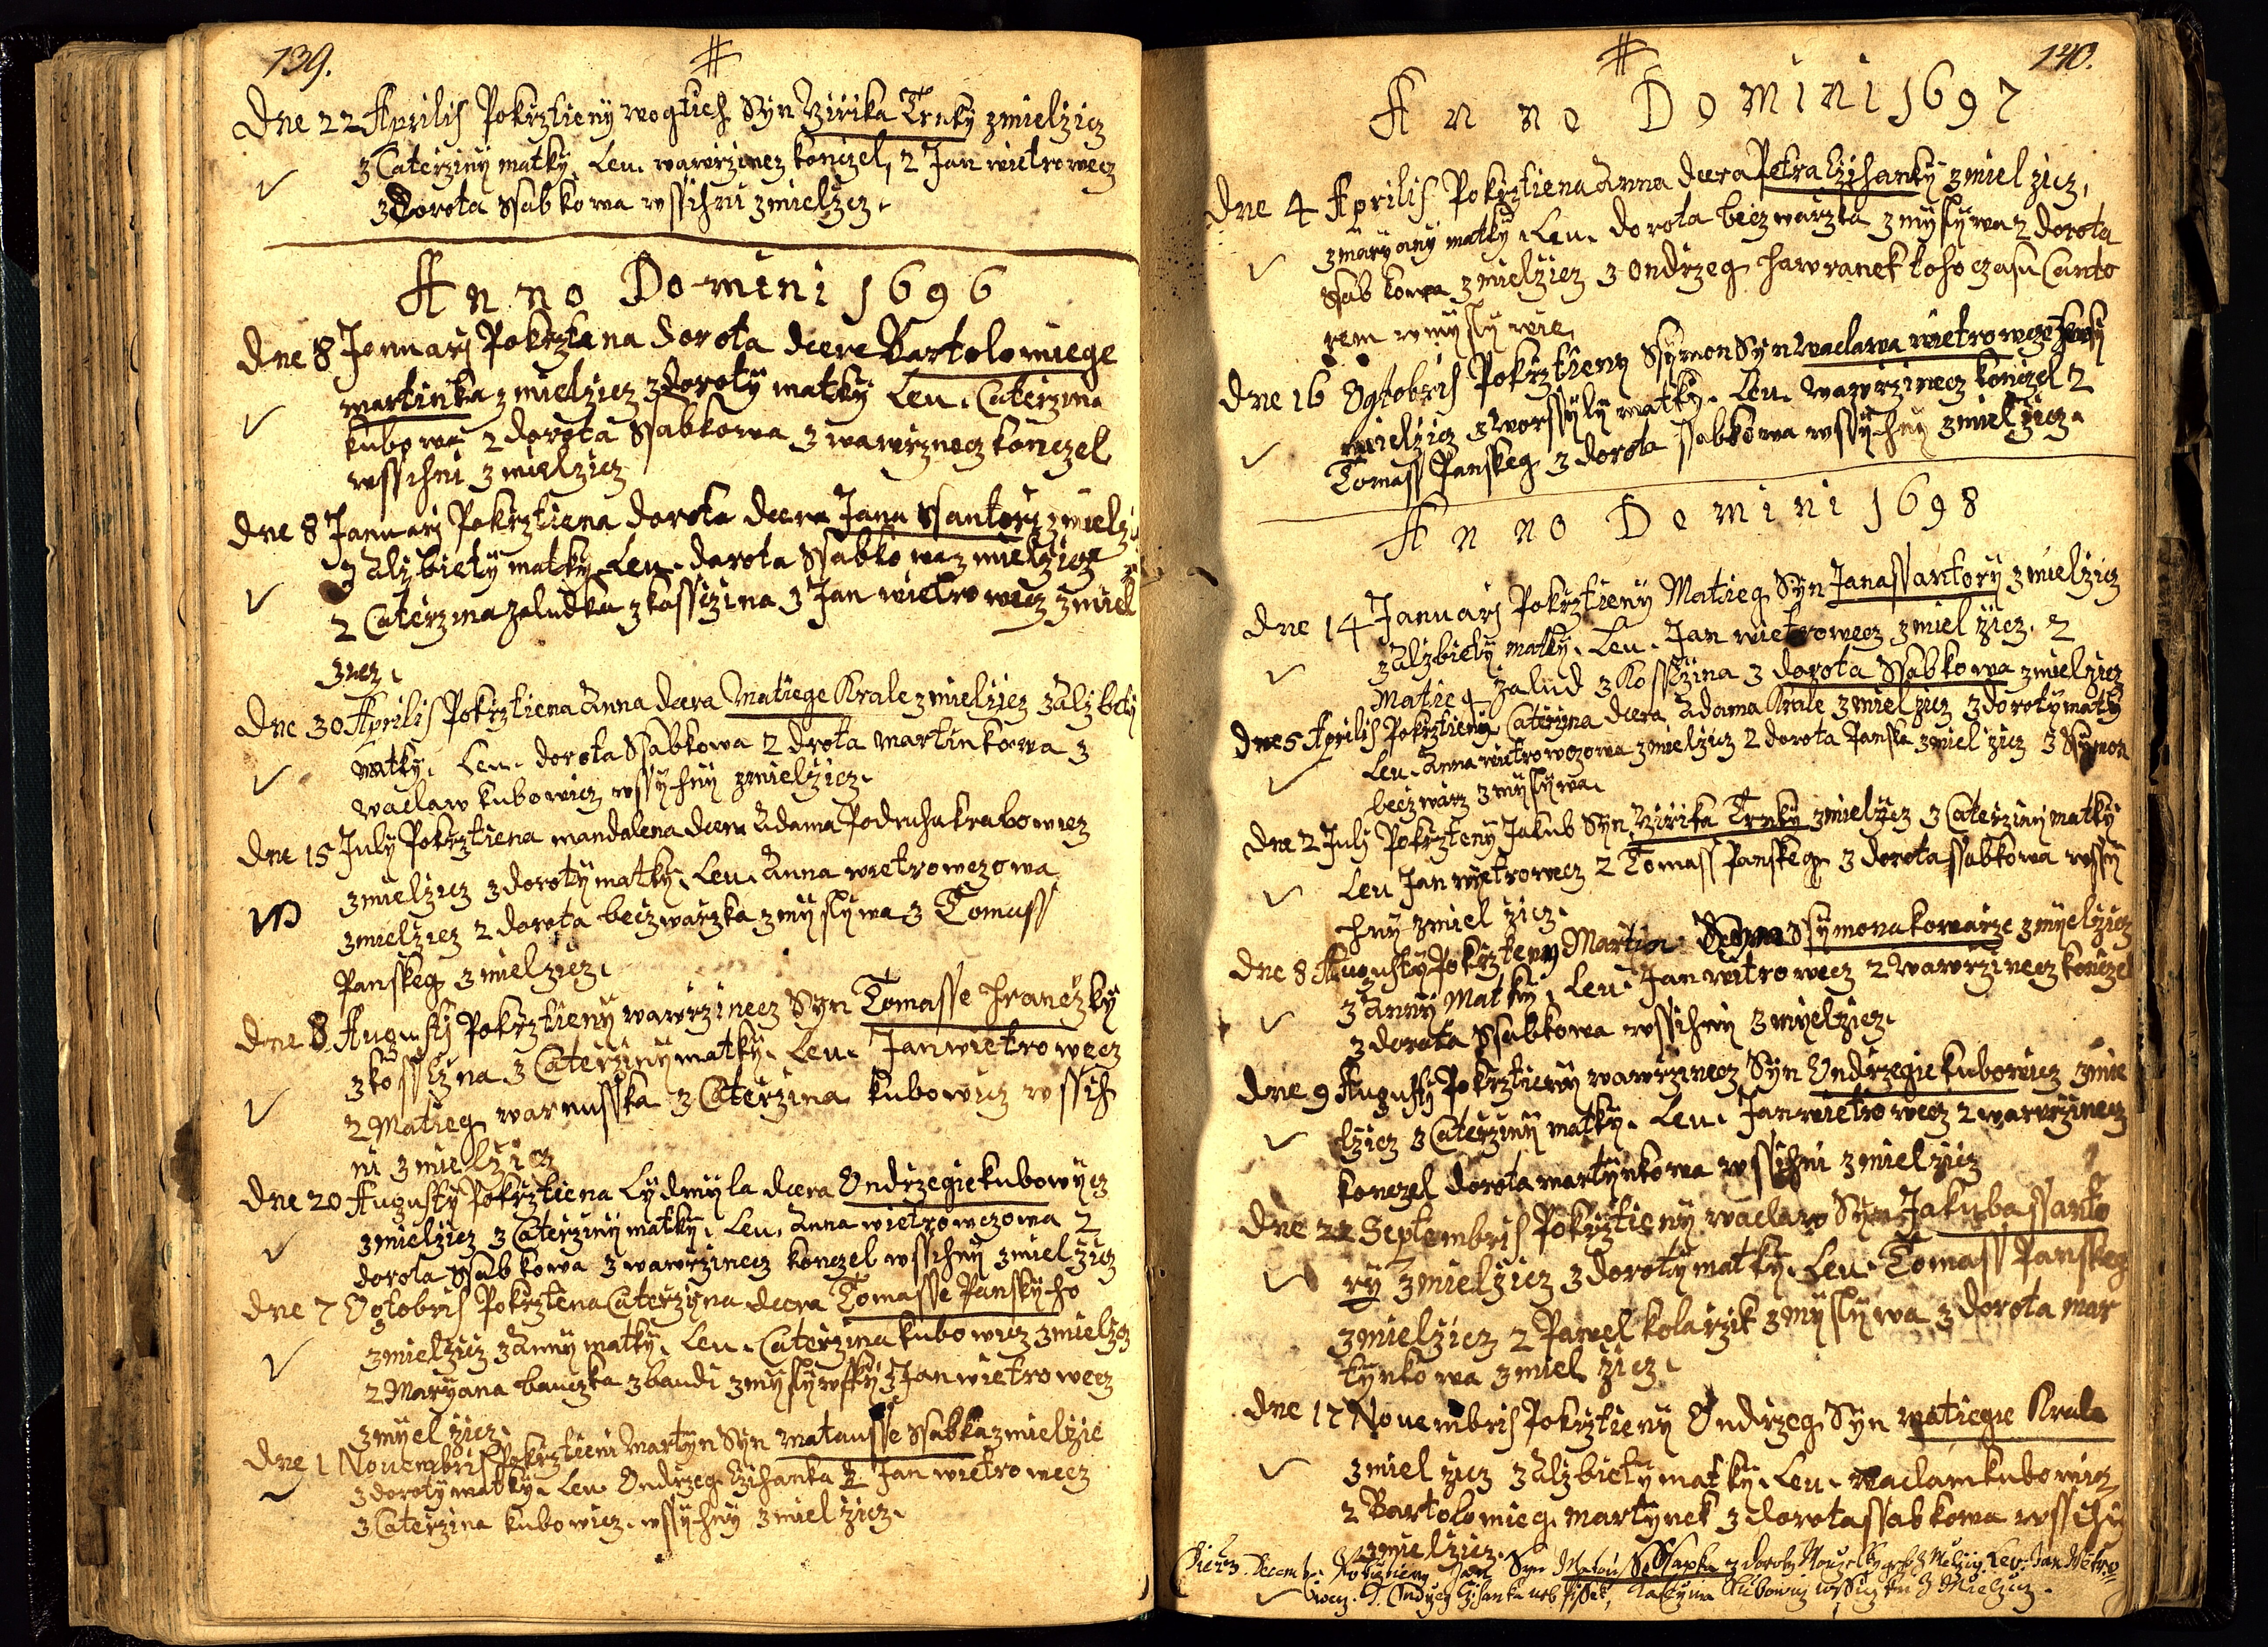 139.
#
Dne 22 Aprilis Pokrztieny wogtieh Syn Girika Trnky zmielzicz
z Caterziny matky. Leu. wawrzinecz konczel, 2 Jan wietrowecz
3 Dorota Ssabkowa wssihni zmielzicz.
Anno Domini 1696
Dne 8 Jenuarj Pokrztena dorota dcera Bartolomiege
martinka zmielzicz z doroty matky Leu. Caterzina
kubowa 2 dorota Ssabkowa 3 wawrzinecz konczel
wssihni zmielzicz
Dne 8 Januarj Pokrztiena dorota dcera Jana Ssantory zmielzi
z Alzbiety matky. Leu. dorota Ssabkowa zmielzicz
2 Caterzina zaludka z kossczina 3 Jan wietrowecz zmiel
zicz.
Dne 30 Aprilis Pokrztiena Anna dcera Matiege Krale zmielzicz z Alzbety
matky. Leu. dorota Ssabkowa 2 drota martinkowa 3
waclaw kubowicz wssyhny zmielzicz.
Dne 15 July Pokrztiena mandalena dcera Adama Podruha krabowicz
zmielzicz z doroty matky. Leu. Anna wietrowczowa
zmielzicz 2 dorota beczwarzka z myslywa 3 Tomass
Panskeg zmielzicz.
Dne 8 Augusti Pokrztieny wawrzinecz Syn Tomasse hraneczky
z kossczina z Caterziny matky. Leu. Jan wietrowecz
2 Matieg warnusska 3 Caterzina kubowicz wssih
ni zmielzicz
Dne 20 Augusty Pokrztiena Lydmyla dcera Ondrzegie kubowycz
zmielzicz z Caterziny matky. Leu. Anna wietrowczowa 2
dorota Ssabkowa 3 wawrzinecz konczel wssihny zmielzicz
Dne 7 Ogtobris Pokrztena Caterzyna dcera Tomasse Panskyho
zmielzicz z Anny matky. Leu. Caterzina kubowicz zmielzicz
2 Maryana bauczka z baudi z myslywsky 3 Jan wietrowecz
zmyelzicz.
Dne 1 Nouembris Pokrztieni Martyn Syn matausse Ssabka zmielzic
z doroty matky. Leu Ondrzeg Czihanka 2 Jan wietrowecz
3 Caterzina kubowicz. wssyhny zmielzicz.
#
140.
Anno Domini 1697
Dne 4 Aprilis Pokrztiena Anna dcera Petra Czihanky zmielzicz,
z maryany matky. Leu. dorota beczwarzka z myslywa 2 dorota
Ssabkowa zmielzicz 3 Ondrzeg hawranek toho czasu Canto
rem w myslywie.
Dne 16 Ogtobris Pokrztieny Ssymon Syn waclawa wietrowcze
mielzicz z worssyly matky. Leu. wawrzinecz konczel 2
Tomass Panskeg 3 dorota ssabkowa wssyhny zmielzicz.
Anno Domini 1698
Dne 14 Januarj Pokrztieny Matieg Syn Jana ssantory zmielzicz
z Alzbiety matky. Leu. Jan wietrowecz zmielzicz. 2
Matieg zalud z kossczina 3 dorota Ssabkowa zmielzicz
Dne 5 Aprilis Pokrztieny Caterzyna dcera Adama Krale zmielzicz z doroty matky
Leu. Anna wietrowczowa zmielzicz 2 dorota Panska zmielzicz 3 Ssymon
beczwarz z myslywa.
Dne 2 Julj Pokrzteny Jakub Syn Girika Trnky zmielzicz z Caterziny matky
Leu Jan wyetrowecz 2 Tomass Panskeg 3 dorota ssabkowa wssy
hny zmielzicz.
Dne 8 Augusty Pokrzteny Martin Ssymona kowarze zmyelzicz
z Anny Matky. Leu. Jan witrowecz 2 wawrzinecz konczel
3 dorota Ssabkowa wssihny zmyelzicz.
Dne 9 Augusty Pokrztieny wawrzinecz Syn Ondrzegie kubowicz zmie
lzicz z Caterziny matky. Leu. Jan wietrowecz 2 wawrzinecz
konczel dorota martynkowa wssihni zmielzicz
Dne 22 Septembris Pokrztieny waclaw Syn Jakuba ssanto
ry zmielzicz z doroty matky. Leu. Tomass Panskeg
zmielzicz 2 Pawel kolarzik z myslywa 3 dorota mar
tynkowa zmielzicz.
Dne 17 Nouembris Pokrztieny Ondrzeg Syn matiegie Krale
zmielzicz z Alzbiety matky. Leu. waclaw kubowicz
2 Bartolomieg martynek 3 dorota ssabkowa wssihi
zmielzicz.
Decemb. Pokrztieny Jan Syn Matau Ssapka z doroty Leu. Jan Wetro
wecz. 2. Ondrzeg Czihanka Katerzina Kubowicz z Mielzicz.